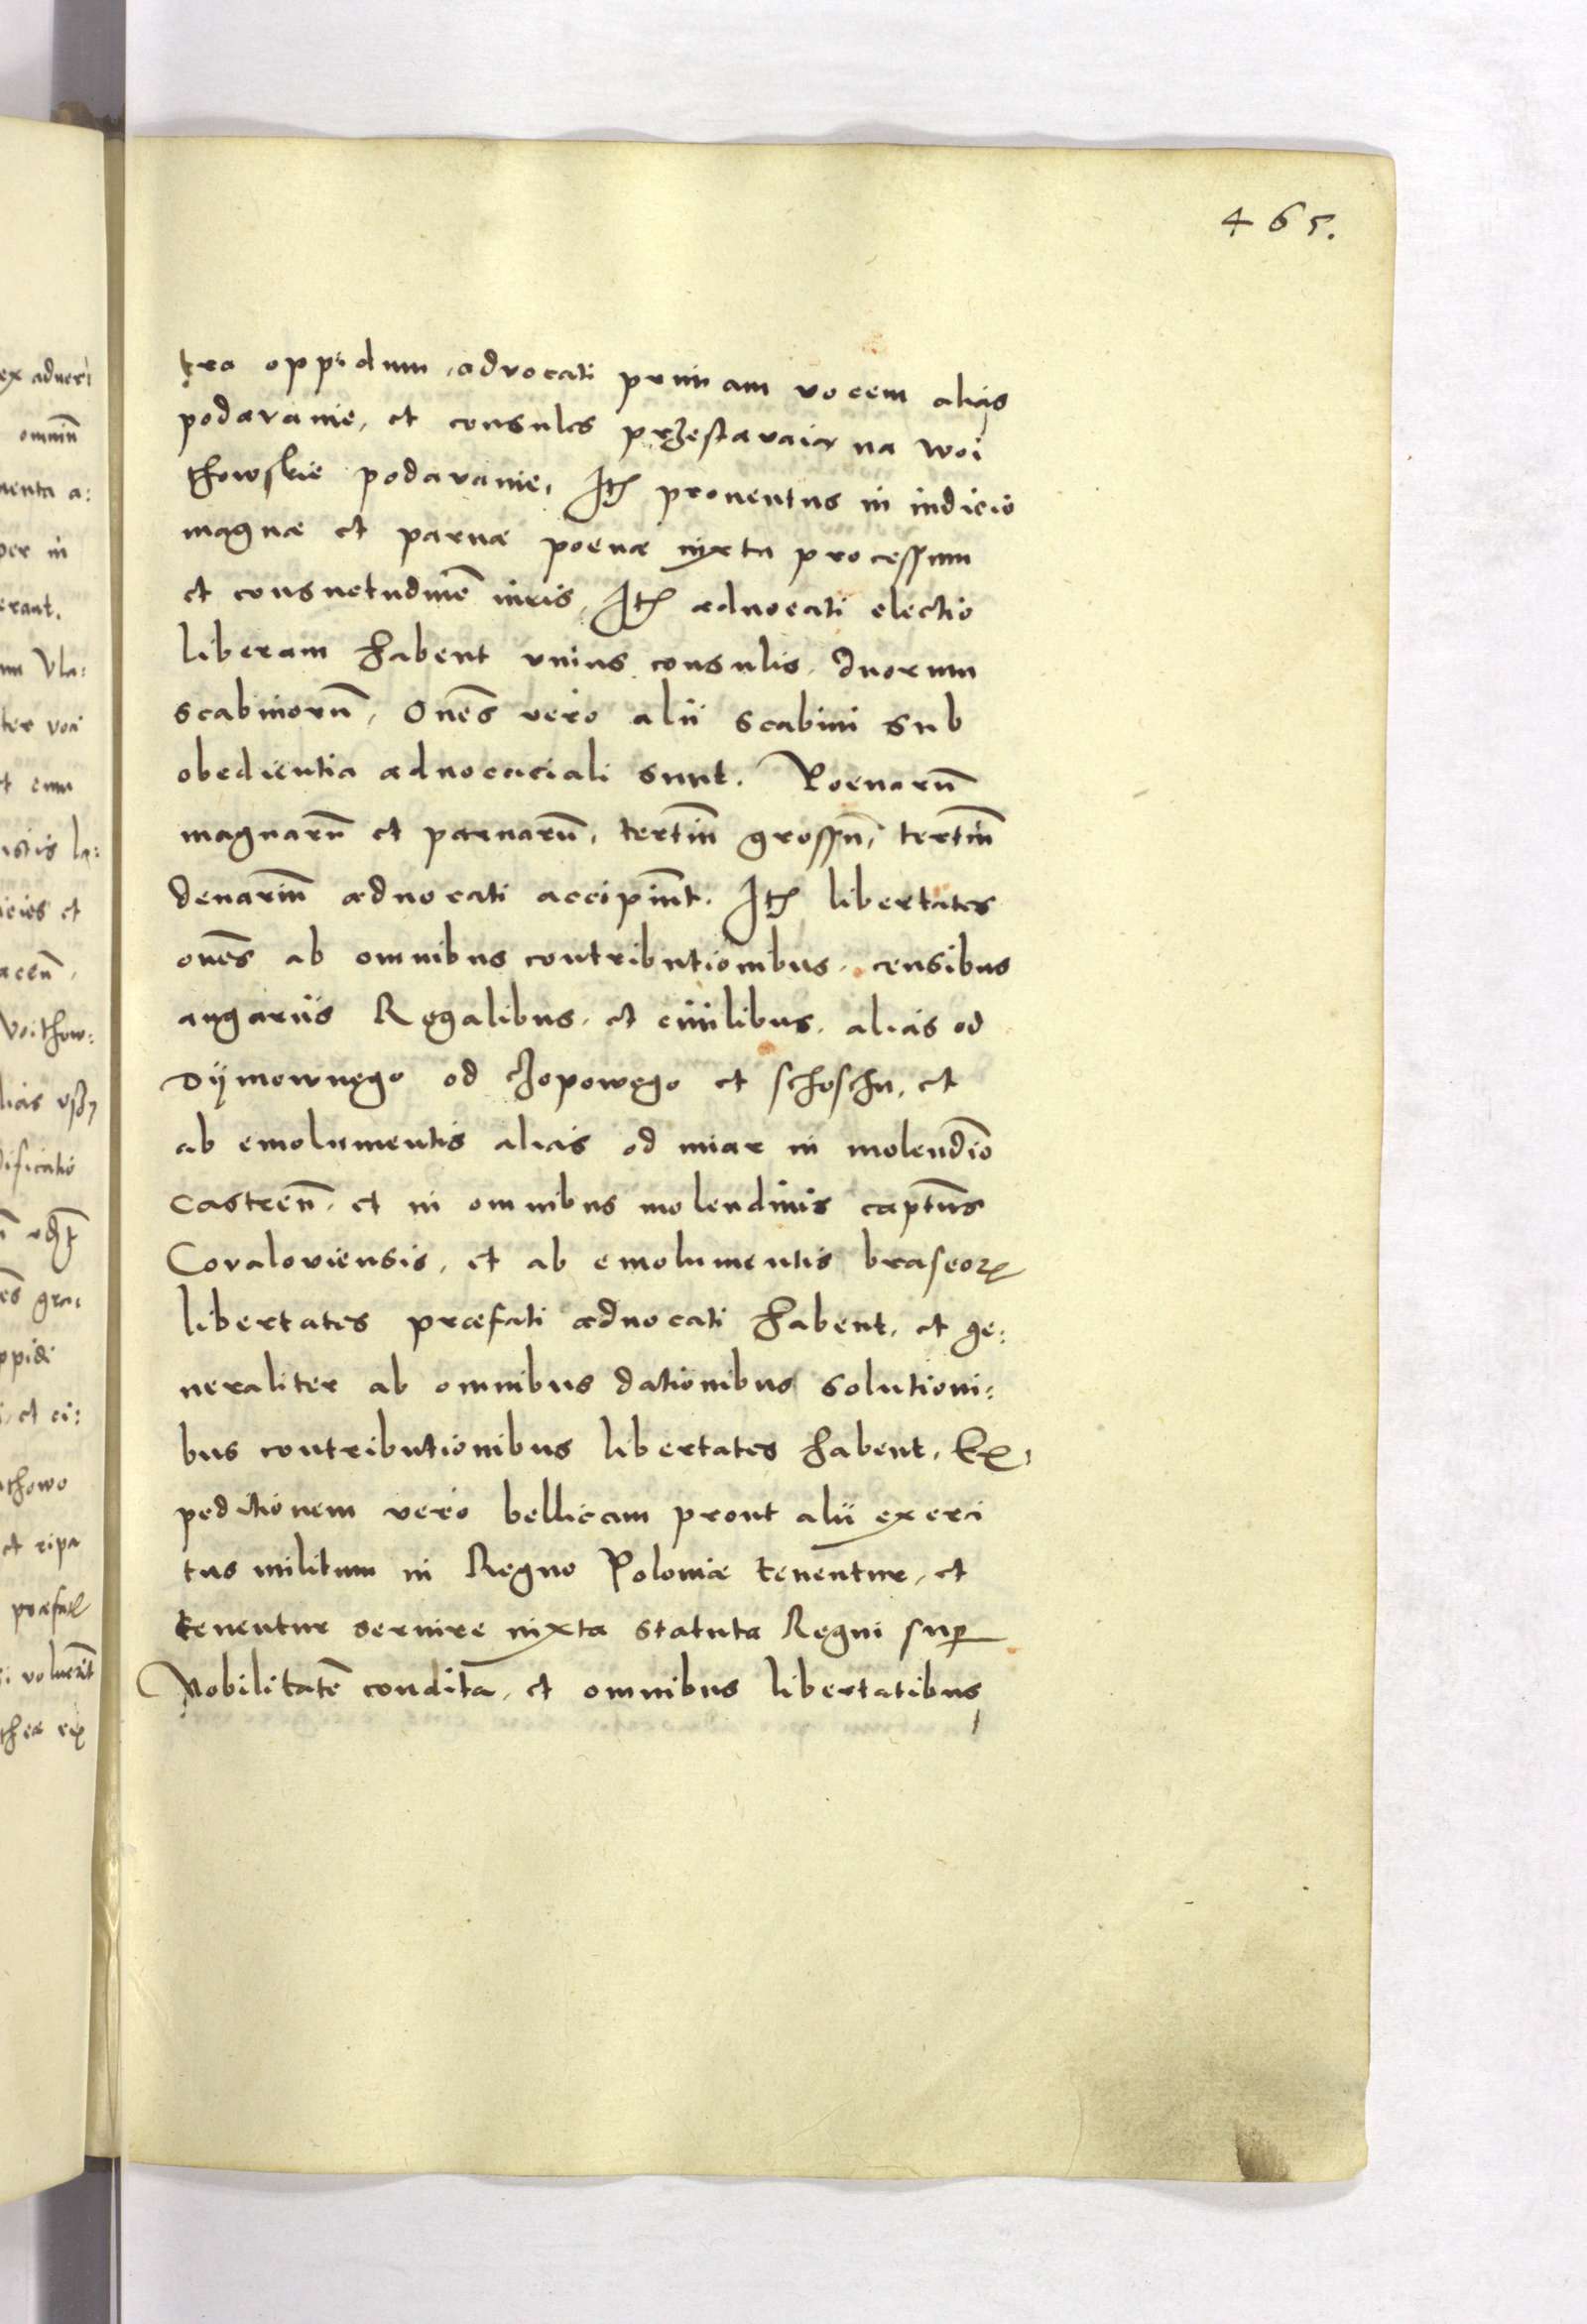 465.
tra oppidum, advocati primam vocem alias
podavanie, et consules przestavaia na woi
thowskie podavanie, Itē proventus in iudicio
magnæ et parvæ poenæ iuxta processum
et consuetudinē iuris, Itē advocati electio
liberam habent unius consulis, duorum
scabinorū, Oñes vero alii scabini sub
obedientia advocaciali sunt. Poenarū
magnarū et parvarū, tertiū grossū, tertiū
denariū advocati accipiūt. Itē libertates
oñes ab omnibus contributionibus, censibus
angariis Regalibus, et civilibus, alias od
Dÿmownego od czopowego et schoschu, et
ab emolumentis alias od miar in molendīo
castren̄, et in omnibus molendinis capt̄us
Covaloviensis, et ab emolumentis braseoꝝ
libertates præfati advocati habent, et ge:
neraliter ab omnibus dationibus solutioni:
bus contributionibus libertates habent, Ex:
peditionem vero bellicam prout alii exerci
tus militum in Regno Poloniæ tenentur, et
tenentur servire iuxta statuta Regni sup
Nobilitatē conditā, et omnibus libertatibus
ex adver:
omniū
menta a:
per in
erant.
um Vla:
ter voi
t cum
istis la:
icies et
Voithow:
lias
dificatio
es gra:
ppidi
et ci:
thowo
et ripa
præfat
voluerīt